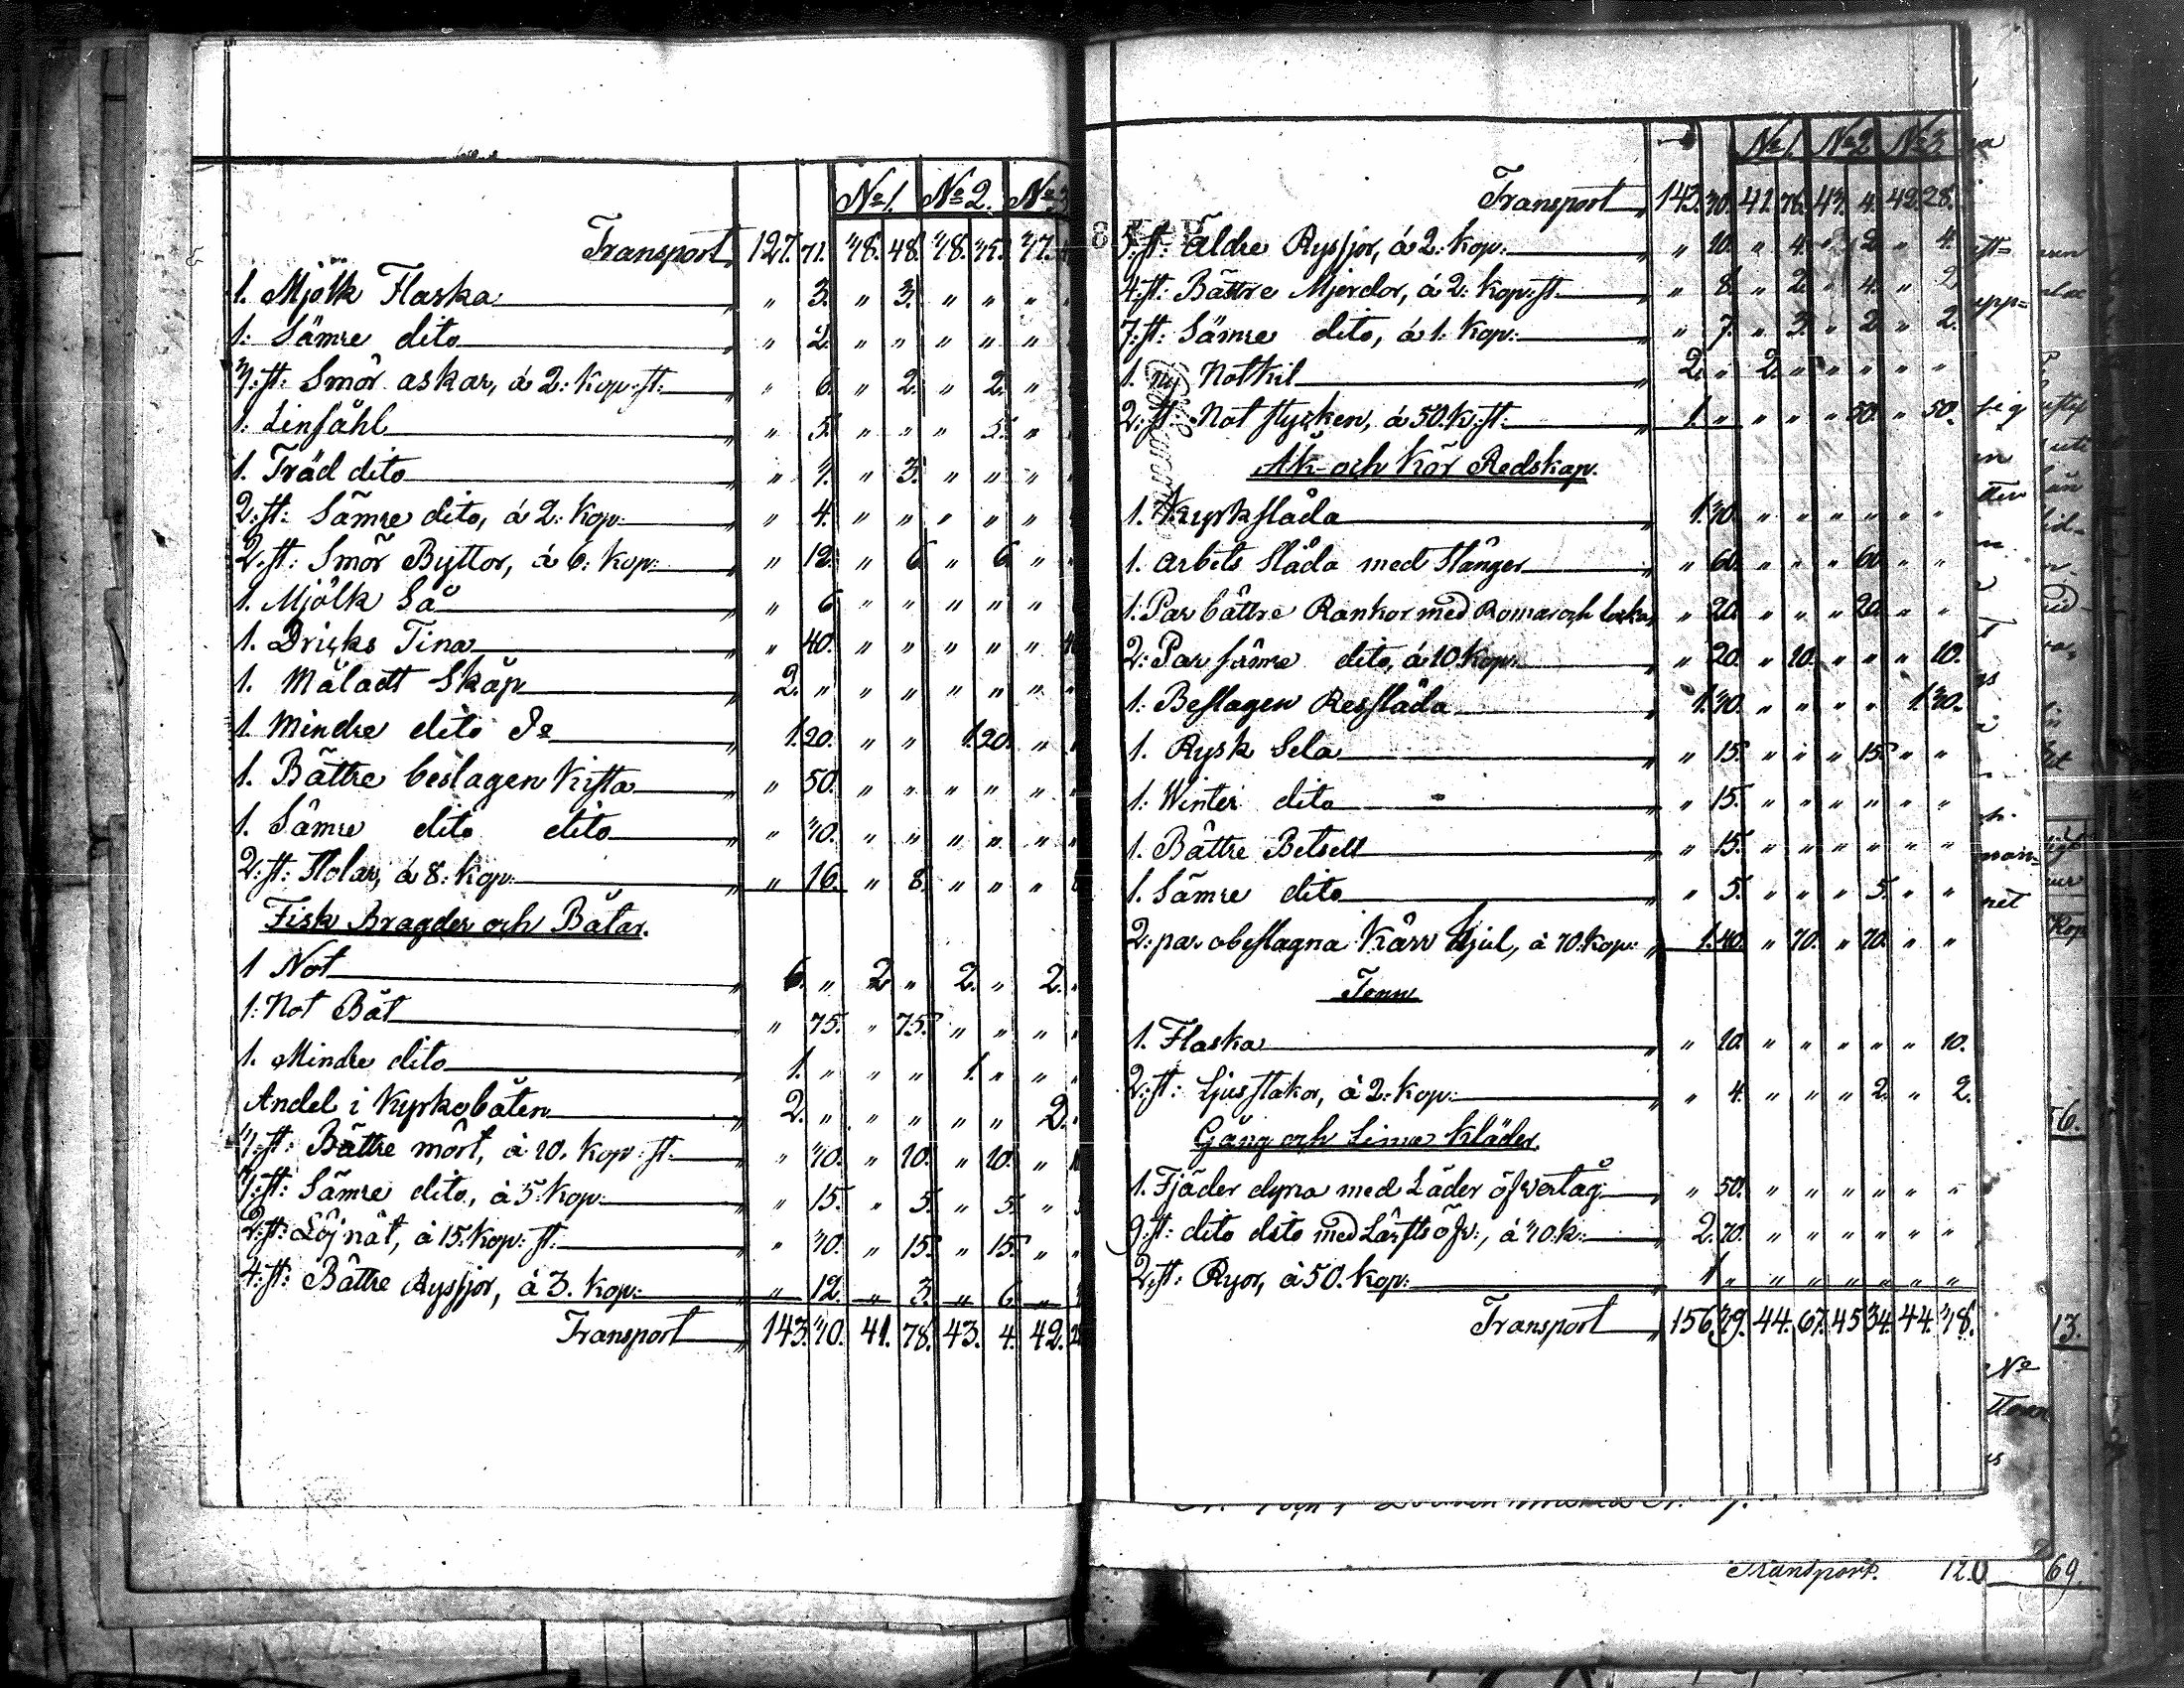 N:o 1. N:o 2. N:o 3
Transport 127. 71. 38. 48. 38. 75. 37.
1. Mjölk Flaska " 3. " 3. " " "
1: Sämre dito " 2. " " " " "
3:st: Smör askar, á 2: Kop: st: " 6. " 2. " 2. "
1: Linsåhl " 5. " " " 5. "
1. Träd dito " 3. " 3. " " "
2:st: Sämre dito, á 2: Kop: " 4. " " " " "
2:st: Smör Byttor, á 6: Kop: " 12. " 6. " 6. "
1. Mjölk Så " 6 " " " " "
1. Dricks Tina " 40. " " " " "
1. Måladt Skåp 2. " " " " " "
1. Mindre dito D:o 1. 20. " " 1. 20. "
1. Bättre beslagen Kista " 50. " " " " "
1. Sämre dito dito " 30. " " " " "
2:st: Stolar, á 8: Kop: " 16. " 8. " " "
Fisk Bragder och Båtar.
1 Not 6. " 2 " 2. " 2.
1: Not Båt " 75. " 75. " " "
1. Mindre dito 1. " " " 1. " "
Andel i Kyrkobåten 2. " " " " " 2.
3:st: Bättre mört, á 10. Kop: st: " 30. " 10. " 10. "
3:st: Sämre dito, á 5: Kop: " 15. " 5. " 5. "
2:st: Löjnät, á 15: Kop: st: " 30. " 15. " 15. "
4:st: Bättre Rysjor, á 3. Kop: " 12. " 3. " 6. "
Transport 143. 30. 41. 78. 43. 4. 42.
N:o 1. N:o 2 N:o 3
Transport 143. 30. 41. 78. 43. 4. 42. 28.
5:st: Äldre Rysjor, á 2: Kop: " 10. " 4. " 2. " 4.
4:st: Bättre Mjerdor, á 2: Kop: st: " 8. " 2. " 4. " 2
7:st: Sämre dito, á 1: Kop: " 7. " 3. " 2. " 2.
1. ny Notkil 2. " 2. " " " " "
2:st: Not stycken, á 50. K: st: 1. " " " " 50. " 50.
Åk- och Kör Redskap.
1. Kyrksläda 1. 30. " " " " " "
1. Arbets Släda med Stånger " 60. " " " 60. " "
1: Par bättre Rankor med Romar och " 20. " " " 20. " "
2: Par sämre dito, á 10 Kop: " 20. " 10. " " " 10.
1: Beslagen Ressläda 1. 30. " " " " 1. 30.
1. Rysk Sela " 15. " " " 15. " "
1: Winter dito " 15. " " " " " "
1. Bättre Betsell " 15. " " " " " "
1. Sämre dito " 5. " " " 5. " "
2: par obeslagna Kärr Hjul, á 70. Kop: 1. 40. " 70. " 70. " "
Tenn
1. Flaska " 10. " " " " " 10.
2:st: Ljusstakor, á 2: Kop: " 4. " " " 2. " 2.
Gång och Linne Kläder.
1. Fjäder dyna med Läder öfvertåg: " 50. " " " " " "
9:st: dito dito med Lärfts öfv:, á 30. k: 2. 70. " " " " " "
2:st: Ryor, á 50. Kop: 1 " " " " " " "
Transport 156. 39. 44. 67. 45 34. 44. 38.
Transport. 120 69.